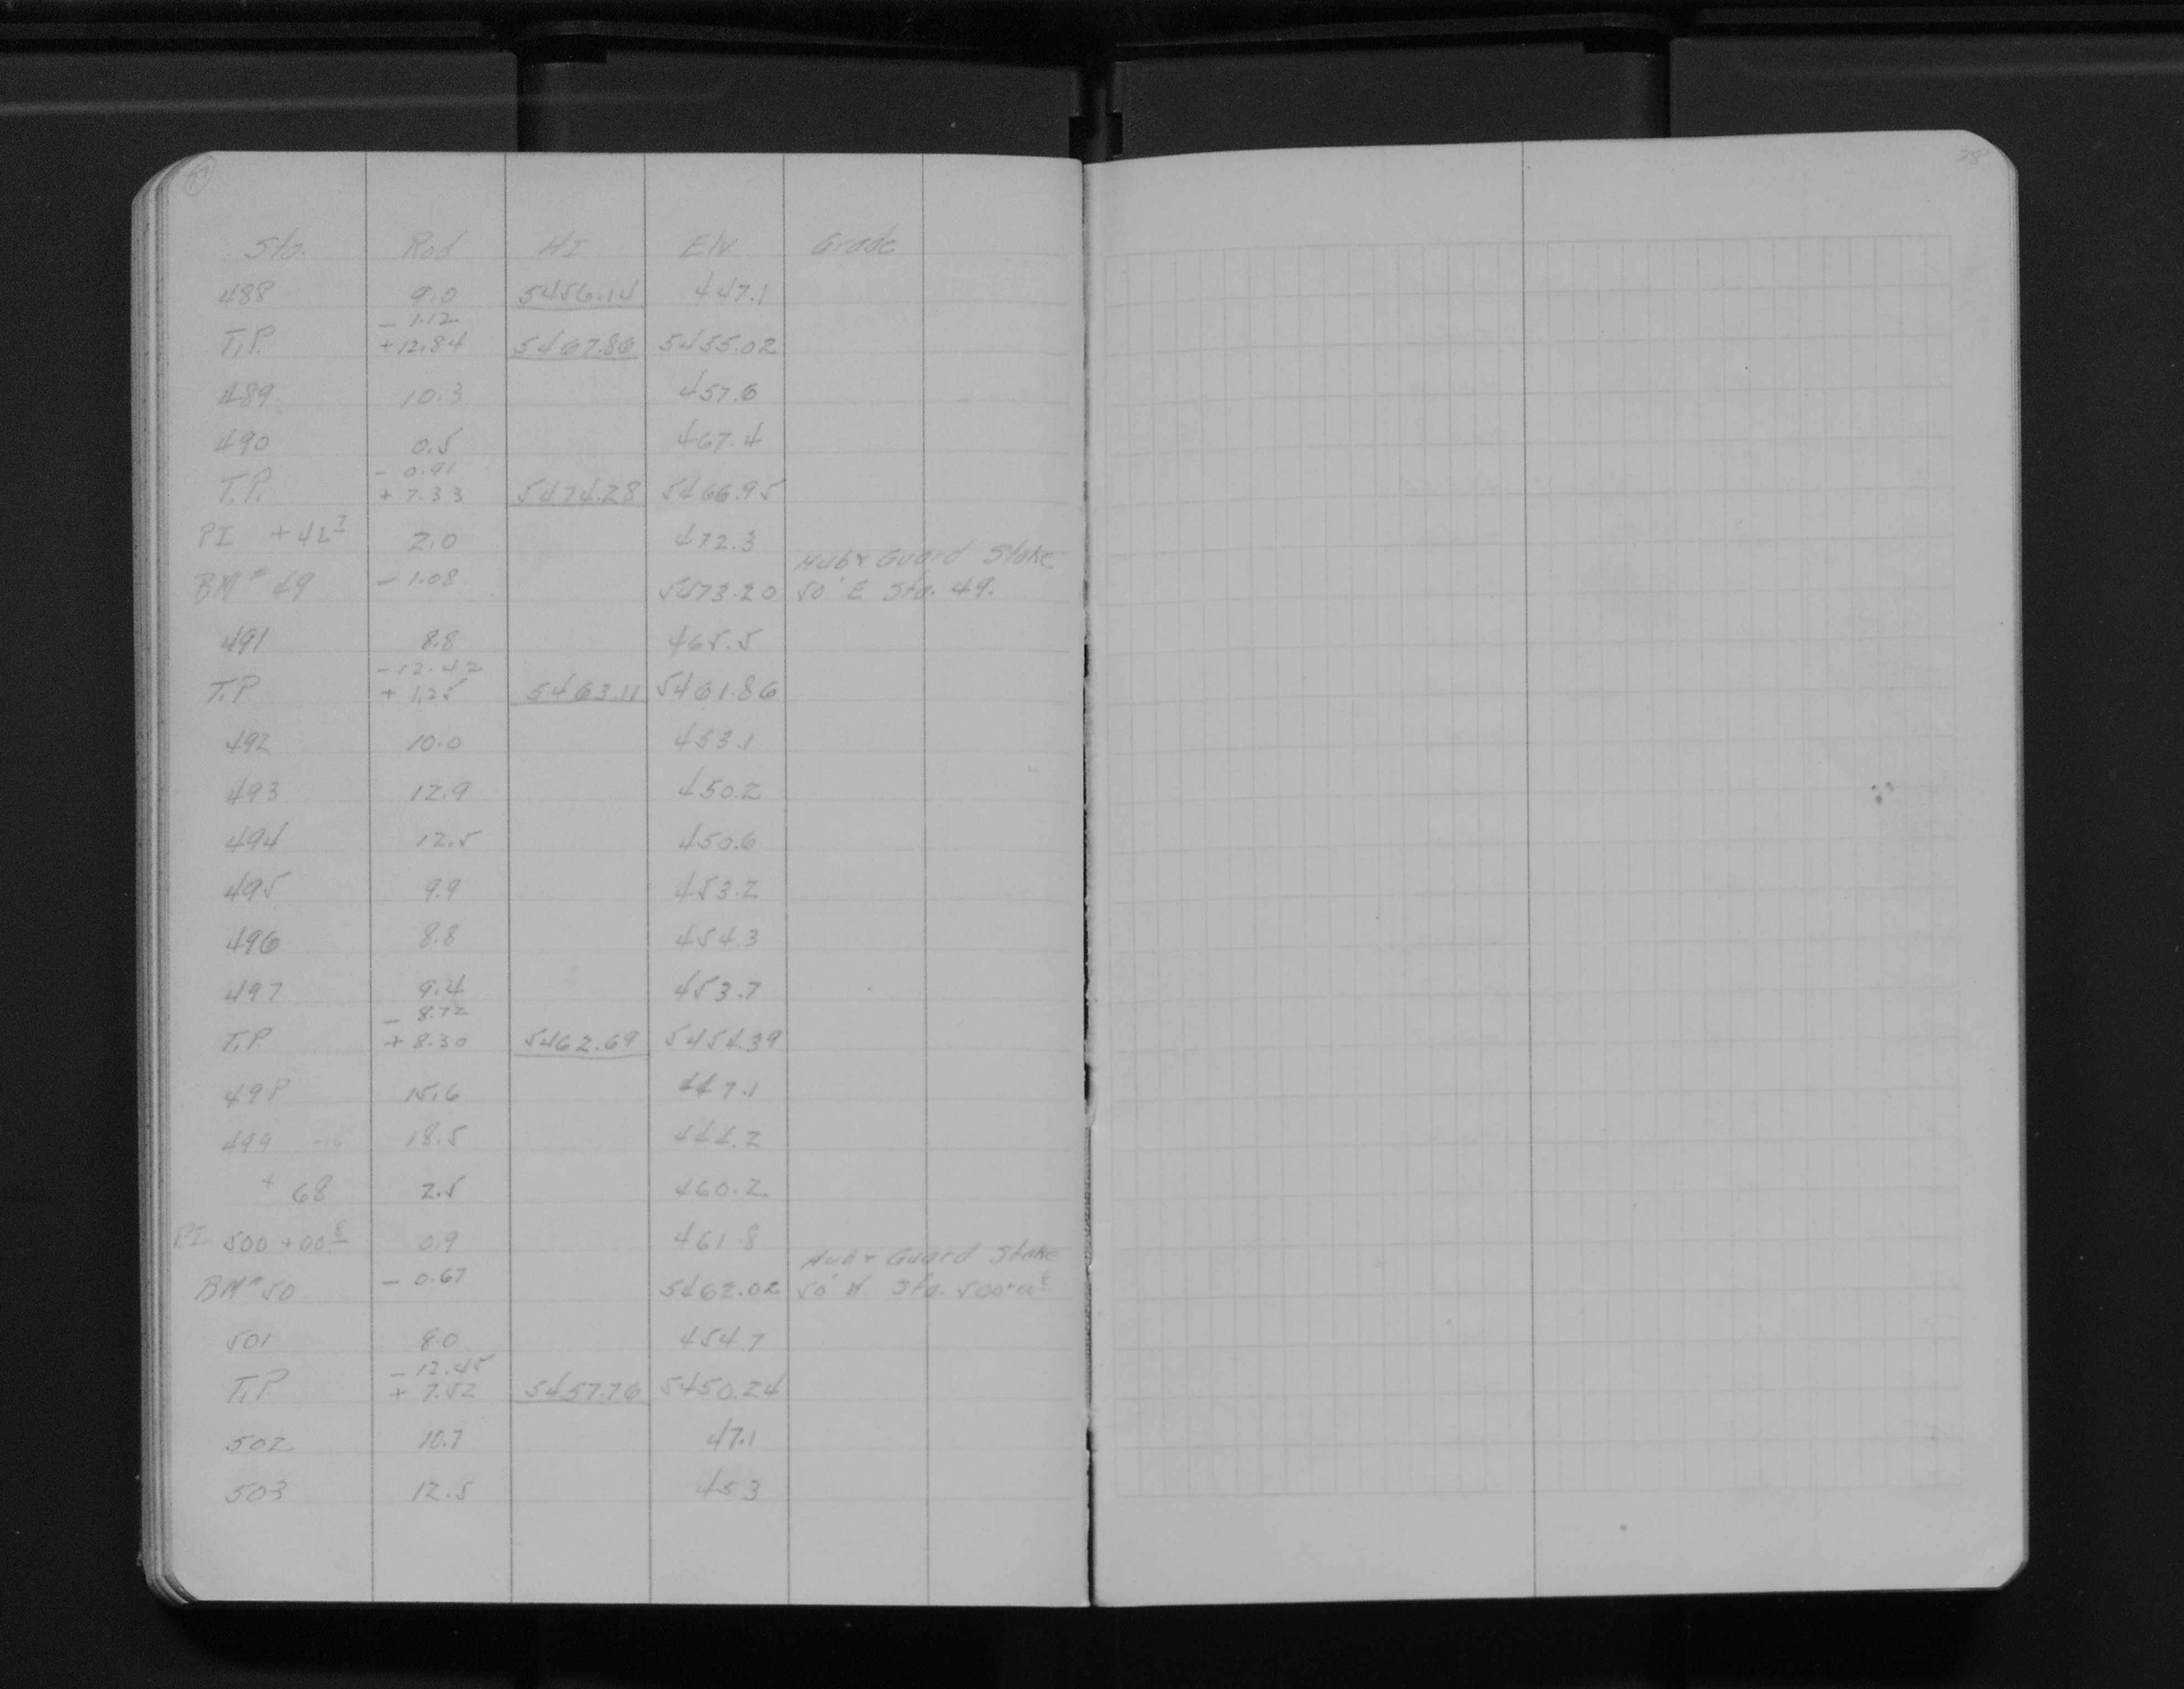 77
78
Sta. Rod HI Elv Grade
488 9.0 5456.14 447.1
- 1.12
T.P. +12.84 5467.86 5455.02
489 10.3 457.6
490 0.5 467.4
- 0.91
T.P. + 7.33 5474.28 5466.95
PI 2.0 472.3
Hub & Guard Stake
BM # 49 - 1.08 5473.20 50' E Sta. 49.
491 8.8 465.5
- 12.42
T.P. + 1.25 5463.11 5461.86
492 10.0 453.1
493 12.9 450.2
494 12.5 450.6
495 9.9 453.2
496 8.8 454.3
497 9.4 453.7
- 8.72
T.P. + 8.30 5462.69 5454.39
498 15.6 447.1
499 18.5 444.2
+ 68 2.5 460.2
PI 500 + 00 8 0.9 461.8
Hub & Guard Stake
BM # 50 - 0.67 5462.02 50' W Sta. 500+00 8
501 8.0 454.7
- 12.45
T.P. + 7.52 5457.76 5450.24
502 10.7 47.1
503 12.5 45.3